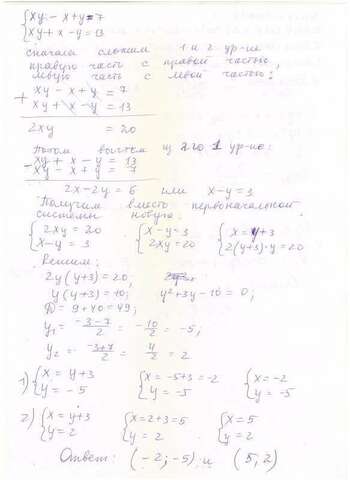 {xy - x + y = 7
{xy + x - y = 13
сначала сложим 1 и 2 ур-ие
правую часть с правой частью,
левую часть с левой частью:
+ xy - x + y = 7
xy + x - y = 13
2xy = 20
Потом вычтем из 2го 1 ур-ие:
- xy + x - y = 13
xy - x + y = 7
2x - 2y = 6 или x - y = 3
Получим вместо первоначальной
системы новую:
{2xy = 20 {x - y = 3 {x = y + 3
{x - y = 3 {2xy = 20 {2(y+3)·y = 20
Решим:
2y(y+3) = 20;
y(y+3) = 10; y²+3y-10 = 0;
D = 9+40 = 49;
y₁ = (-3-7)/2 = -10/2 = -5;
y₂ = (-3+7)/2 = 4/2 = 2
1) {x = y+3 {x = -5+3 = -2 {x = -2
{y = -5 {y = -5 {y = -5
2) {x = y+3 {x = 2+3 = 5 {x = 5
{y = 2 {y = 2 {y = 2
Ответ: (-2; -5) и (5; 2)